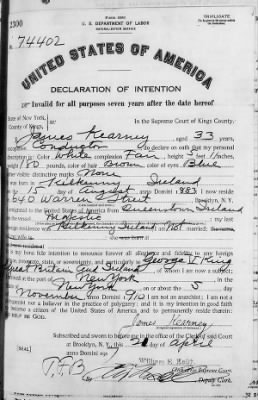 Form 2203
TRIPLICATE
2300
U. S. DEPARTMENT OF LABOR
NATURALIZATION SERVICE
No. 74402
UNITED STATES OF AMERICA
DECLARATION OF INTENTION
Invalid for all purposes seven years after the date hereof
State of New York,
County of Kings,
In the Supreme Court of Kings County.
I, James Kearney, aged 33 years,
occupation, do declare on oath that my personal
description is: Color White, complexion Fair, height feet inches,
weight pounds, color of hair Brown, color of eyes Blue
other visible distinctive marks None
I was born in Kilkenny Ireland
on the 15 day of August, anno Domini 1883; I now reside
at 640 Warren Street, Brooklyn, N.Y.
I emigrated to the United States of America from Queenstown Ireland
on the vessel Majestic
residence was Kilkenny Ireland, I am not married;
It is my bona fide intention to renounce forever all allegiance and fidelity to any foreign
prince, potentate, state, or sovereignty, and particularly to George V King
Great Britain and Ireland, of whom I am now a subject;
I arrived at the port of New York, in the
State of New York, on or about the 5 day
of November, anno Domini 1912; I am not an anarchist; I am not a
polygamist nor a believer in the practice of polygamy; and it is my intention in good faith
to become a citizen of the United States of America and to permanently reside therein:
SO HELP ME GOD.
James Kearney
Subscribed and sworn to before me in the office of the Clerk of said Court
at Brooklyn, N.Y., this day of April
anno Domini
[SEAL]
William E. Kelly
Clerk of the Supreme Court.
Deputy Clerk.